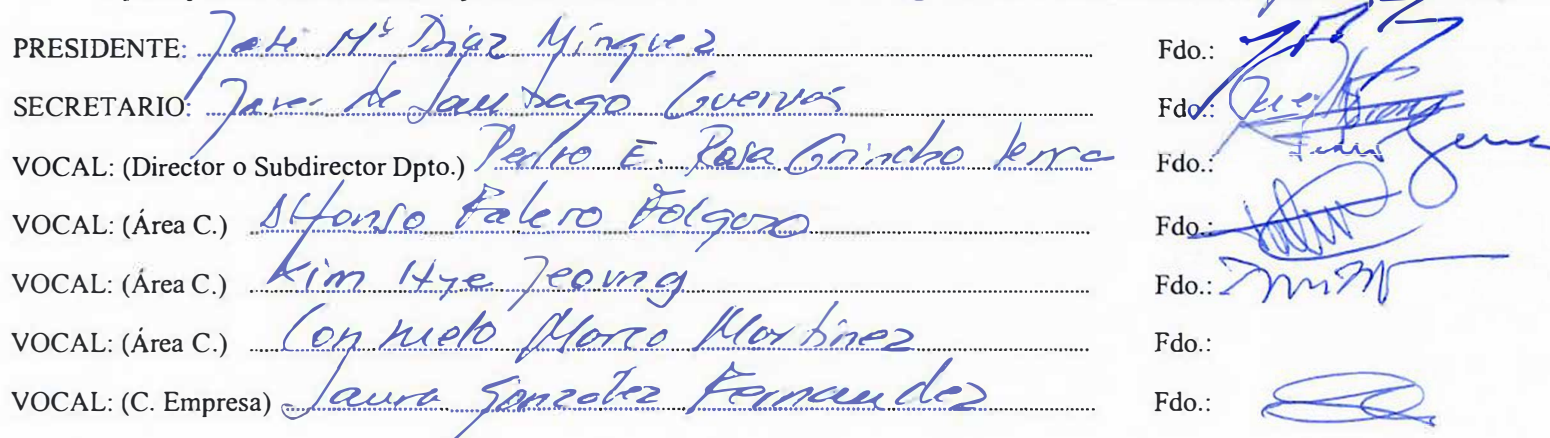 PRESIDENTE: José Mª Díaz Mínguez Fdo.:
SECRETARIO: Javier de Santiago Guervós Fdo.:
VOCAL: (Director o Subdirector Dpto.) Pedro E. Rosa Grincho Serra Fdo.:
VOCAL: (Área C.) Alfonso Falero Folgoso Fdo.:
VOCAL: (Área C.) Kim Hye Jeoung Fdo.:
VOCAL: (Área C.) Consuelo Marco Martínez Fdo.:
VOCAL: (C. Empresa) Laura González Fernandez Fdo.: